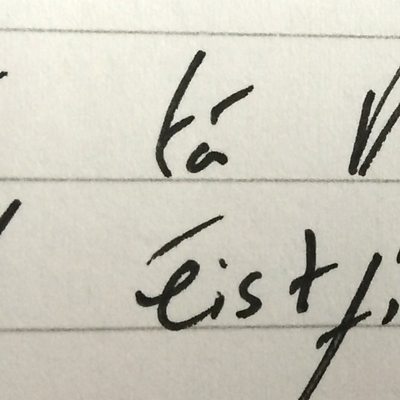 tá
éistfi